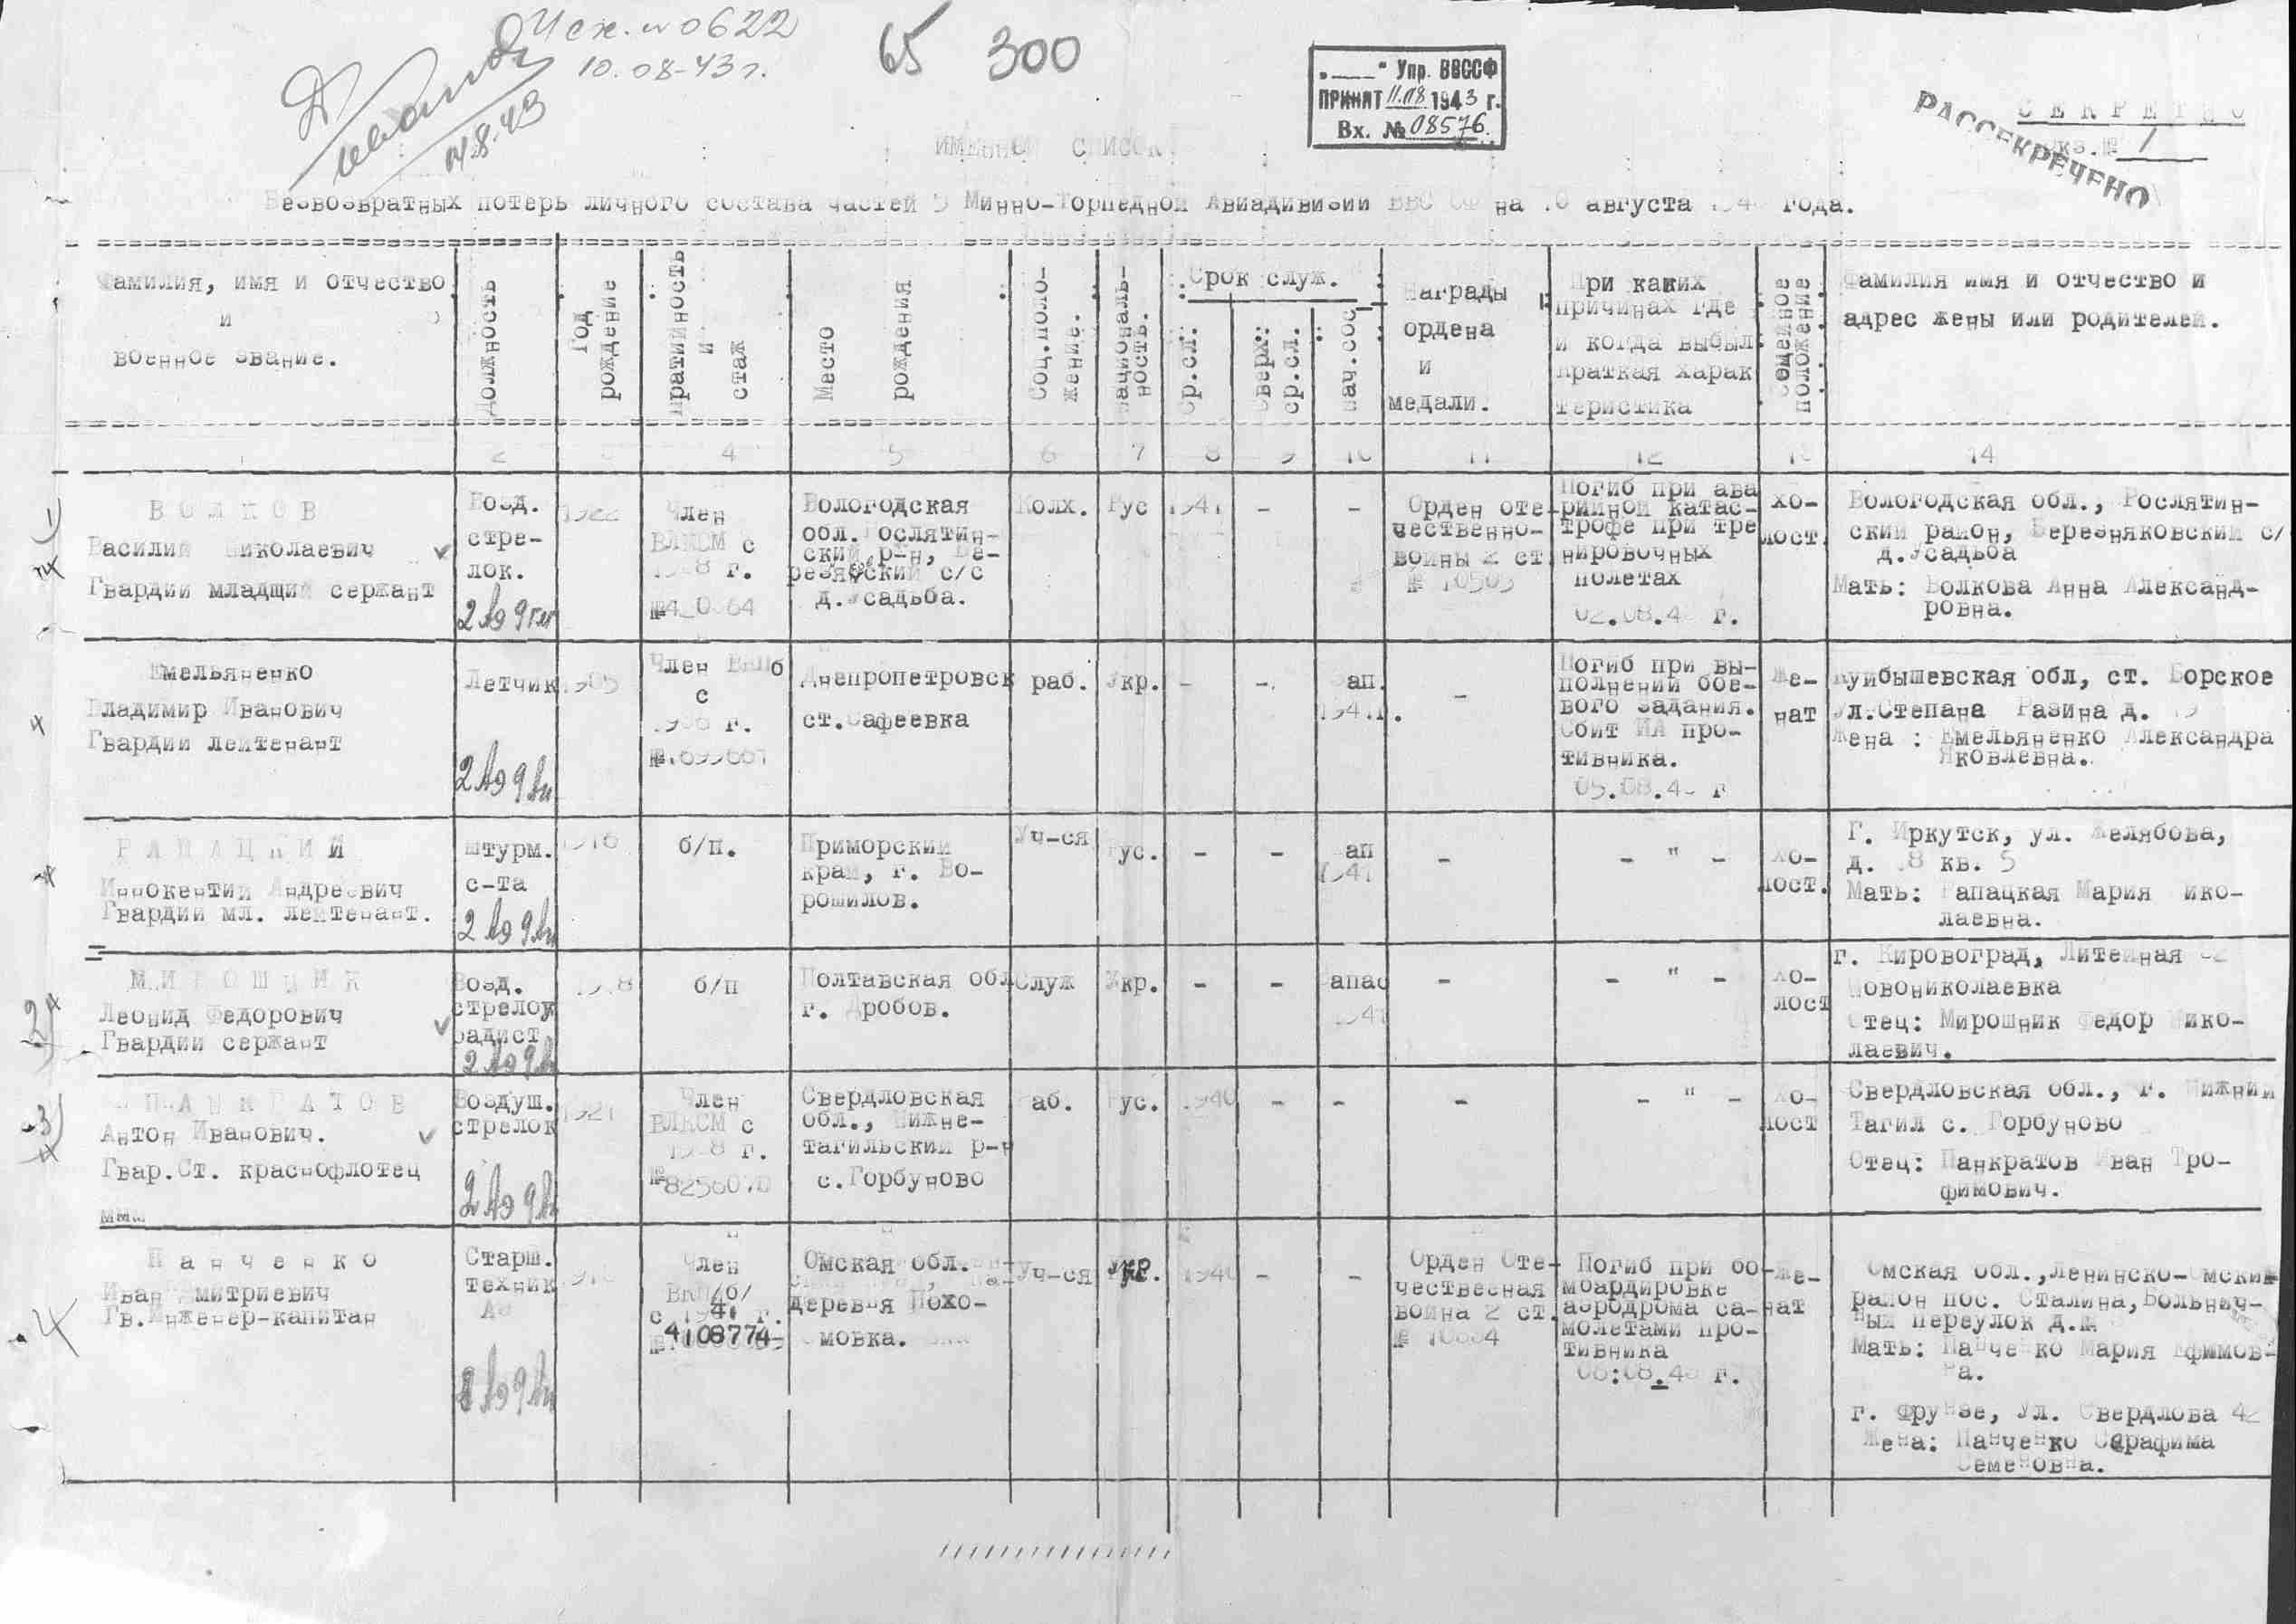 Исх. № 0622
10.08-43 г.
65 300
"___" Упр. ВВССФ
ПРИНЯТ 11.08 1943 г.
Вх. № 08576.
СЕКРЕТНО
Экз. № 1
РАССЕКРЕЧЕНО
ИМЕННОЙ СПИСОК
Безвозвратных потерь личного состава частей 5 Минно-Торпедной Авиадивизии ВВС СФ на 10 августа 194 года.
Фамилия, имя и отчество
и
военное звание.
Должность
Год
рождение
Пратийность
и
стаж
Место
рождения
Соц.поло-
жение.
Националь-
ность.
Срок служ.
Ср.сл.
Сверх
ср.сл.
Нач.сос
Награды
ордена
и
медали.
При каких
причинах где
и когда выбыл
Краткая харак
теристика
Семейное
положение
Фамилия имя и отчество и
адрес жены или родителей.
2 4 5 6 7 8 9 10 11 12 13 14
1)
ВОЛКОВ
Василий Николаевич
Гвардии младщий сержант
Возд.
стре-
лок.
1922
Член
ВЛКСМ с
г.
Вологодская
обл. Рослятин-
ский р-н, Бе-
с/с
д.Усадьба.
Колх.
Рус
1941
-
-
Орден оте-
чественно-
войны 2 ст.
№ 10503
Погиб при ава
рийной катас-
трофе при тре
нировочных
полетах
02.08.4 г.
хо-
лост.
Вологодская обл., Рослятин-
ский район, Березняковский с/
д.Усадьба
Мать: Волкова Анна Александ-
ровна.
Емельяненко
Владимир Иванович
Гвардии лейтенант
Летчик
1905
Член ВКПб
с
г.
Днепропетровск
ст.Сафеевка
раб.
Укр.
-
-.
Зап.
1941г.
-
Погиб при вы-
полнении бое-
вого задания.
Сбит ИА про-
тивника.
05.08.4 г
Же-
нат
Куйбышевская обл, ст. Борское
Ул.Степана Разина д.
Жена : Емельяненко Александра
Яковлевна.
РАПАЦКИЙ
Иннокентий Андреевич
Гвардии мл. лейтенант.
Штурм.
с-та
1916
б/п.
Приморский
край, г. Во-
рошилов.
Уч-ся
Рус.
-
-
Зап
1941
-
- " -
Хо-
лост.
Г. Иркутск, ул. Желябова,
д. 8 кв. 5
Мать: Рапацкая Мария Нико-
лаевна.
2)
МИРОШНИК
Леонид Федорович
Гвардии сержант
Возд.
стрелок
радист
б/п
Полтавская обл
г. Дробов.
Служ
Укр.
-
-
Запас
194
-
- " -
Хо-
лост
г. Кировоград, Литейная
Новониколаевка
Отец: Мирошник Федор Нико-
лаевич.
3)
ПАНКРАТОВ
Антон Иванович.
Гвар.Ст. краснофлотец
Воздуш.
стрелок
1921
Член
ВЛКСМ с
г.
Свердловская
обл., Нижне-
тагильский р-н
с.Горбуново
Раб.
Рус.
1940
-
-
-
- " -
Хо-
лост
Свердловская обл., г. Нижний
Тагил с. Горбуново
Отец: Панкратов Иван Тро-
фимович.
4
Панченко
Иван Дмитриевич
Гв.Инженер-капитан
Старш.
техник
АЭ
Член
ВКП/б/
с г.
4106774
Омская обл.
деревня Похо-
мовка.
Уч-ся
Укр.
1940
-
-
Орден Оте-
чественная
война 2 ст.
Погиб при бо-
мбардировке
аэродрома са-
молетами про-
тивника
08.08.4 г.
Же-
нат
Омская обл.,Ленинско-Омский
район пос. Сталина,Больнич-
ный переулок д.
Мать: Панченко Мария Ефимов-
на.
г. Фрунзе, Ул. Свердлова 42
Жена: Панченко Серафима
Семеновна.